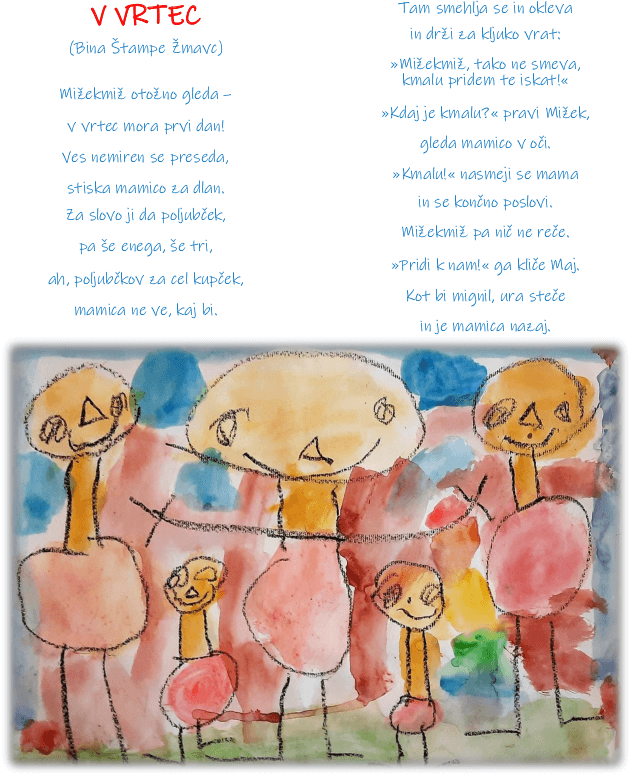 V VRTEC
(Bina Štampe Žmavc)
Mižekmiž otožno gleda –
v vrtec mora prvi dan!
Ves nemiren se preseda,
stiska mamico za dlan.
Za slovo ji da poljubček,
pa še enega, še tri,
ah, poljubčkov za cel kupček,
mamica ne ve, kaj bi.
Tam smehlja se in okleva
in drži za kljuko vrat:
»Mižekmiž, tako ne smeva,
kmalu pridem te iskat!«
»Kdaj je kmalu?« pravi Mižek,
gleda mamico v oči.
»Kmalu!« nasmeji se mama
in se končno poslovi.
Mižekmiž pa nič ne reče.
»Pridi k nam!« ga kliče Maj.
Kot bi mignil, ura steče
in je mamica nazaj.